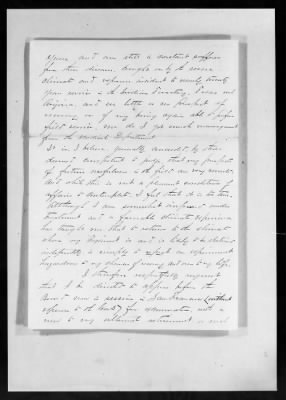 opened and am still a constant sufferer
from these diseases, brought on by the severe
climate and exposure incident to nearly twenty
years service in the Indian Territory, Texas and
Arizona, and see little or no prospect of
recovery or of my being again able to perform
field service, nor do I get much encouragement
from the Medical Department.
It is, I believe, generally admitted, by those
deemed competent to judge, that my prospect
of future usefulness in the field are very small,
and while this is not a pleasant condition of
affairs to contemplate I feel that it is so.
Although I am somewhat improved under
treatment and a favorable climate experience
has taught me that to return to the climate
where my Regiment is and is likely to be stationed
indefinitely is simply to an experiment
hazardous to my chances of recovery and even to my life.
I therefore respectfully request
that I be directed to appear before the
Board now in session in San Francisco (without
expense to the Govt) for examination, with a
view to my ultimate retirement in such